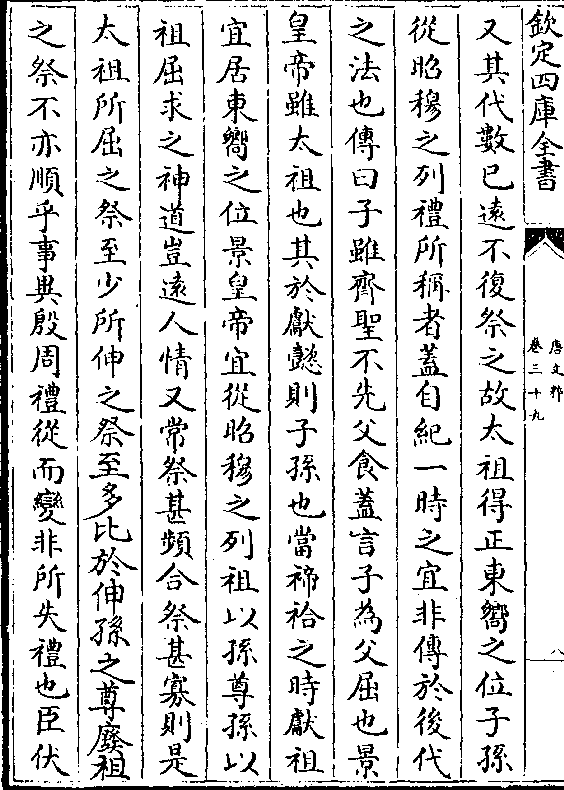 欽定四庫全書
唐文粹
卷三十九
八
又其代數已遠不復祭之故太祖得正東嚮之位子孫
從昭穆之列禮所稱者蓋自紀一時之宜非傳於後代
之法也傳曰子雖齊聖不先父食蓋言子為父屈也景
皇帝雖太祖也其於獻懿則子孫也當禘祫之時獻祖
宜居東嚮之位景皇帝宜從昭穆之列祖以孫尊孫以
祖屈求之神道豈遠人情又常祭甚頻合祭甚寡則是
太祖所屈之祭至少所伸之祭至多比於伸孫之尊廢祖
之祭不亦順乎事異殷周禮從而變非所失禮也臣伏